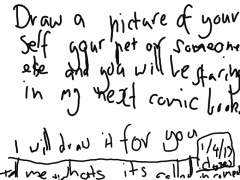 Draw a picture of your
self your pet or someone
else and you will be staring
in my next comic book
I will draw it for you
1/4/13
tell me whats its called in comments